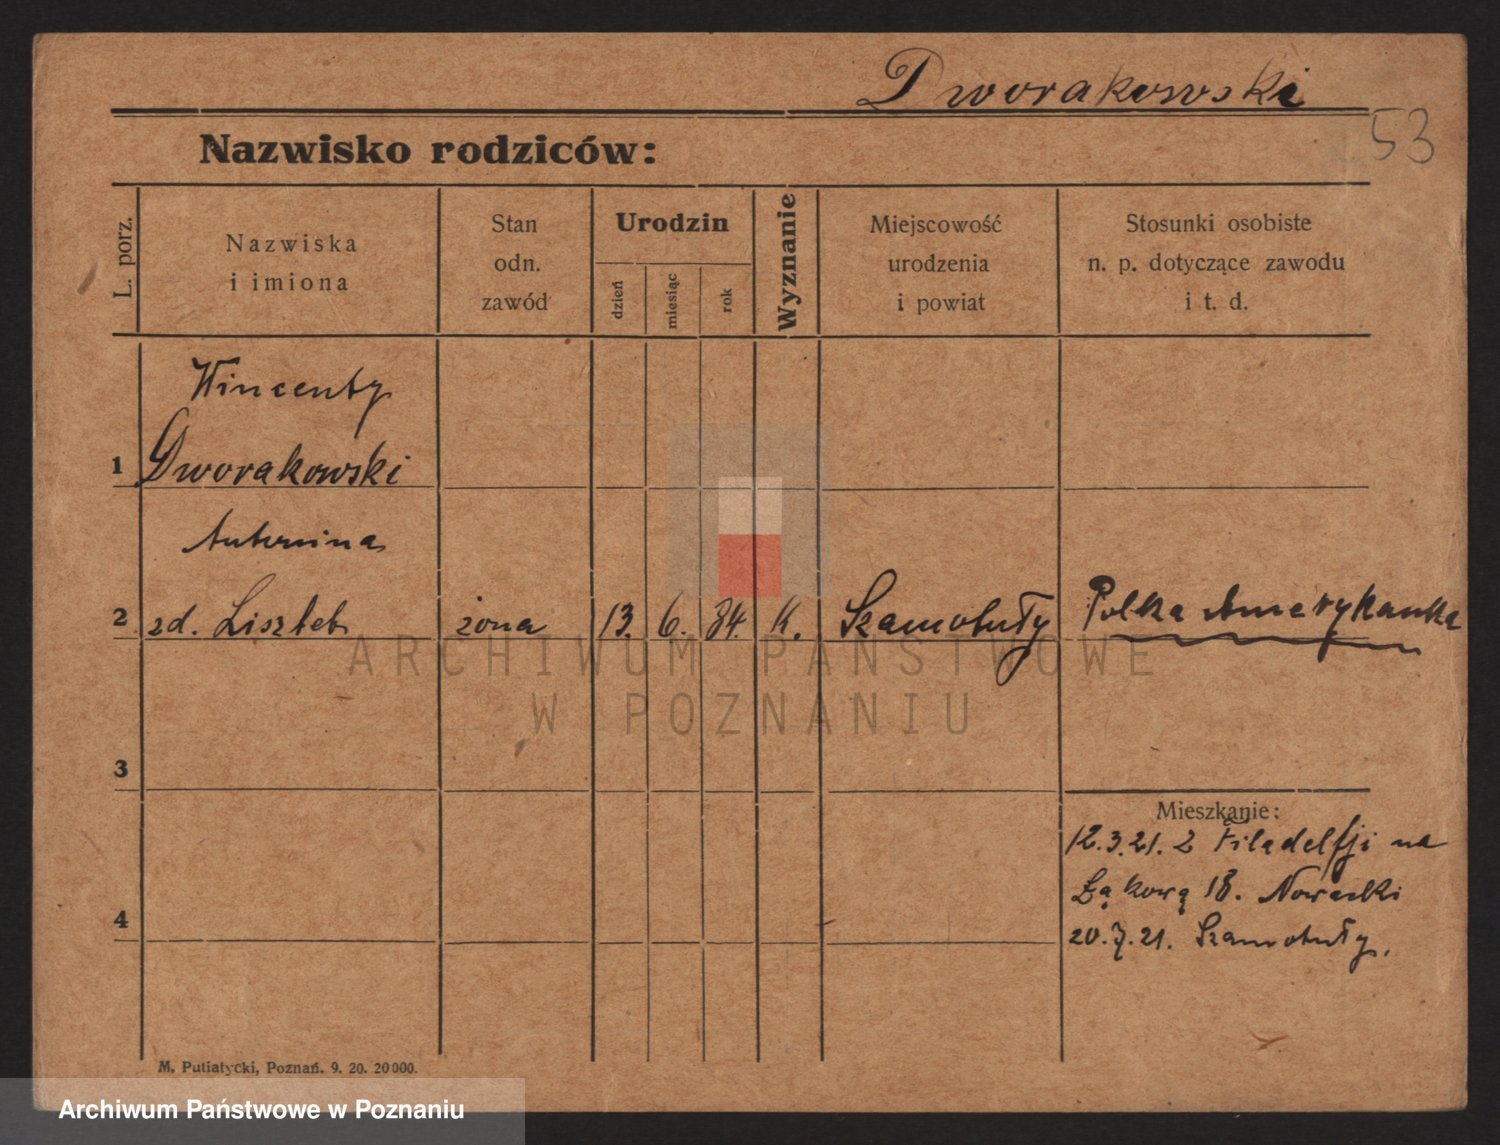 Dworakowski
53
Nazwisko rodziców:
L. porz.
Nazwiska
i imiona
Stan
odn.
zawód
Urodzin
dzień
miesiąc
rok
Wyznanie
Miejscowość
urodzenia
i powiat
Stosunki osobiste
n. p. dotyczące zawodu
i t. d.
Wincenty
1 Dworakowski
Antonina
2 zd. żona 13. 6. 84. K. Szamotuły Polka Amerykanka
ARCHIWUM PAŃSTWOWE
W POZNANIU
3
Mieszkanie:
12.3.21. z Filadelfji na
Łąkową 18. Nowacki
4
20.7.21. Szamotuły.
M. Putiatycki, Poznań. 9. 20. 20000.
Archiwum Państwowe w Poznaniu